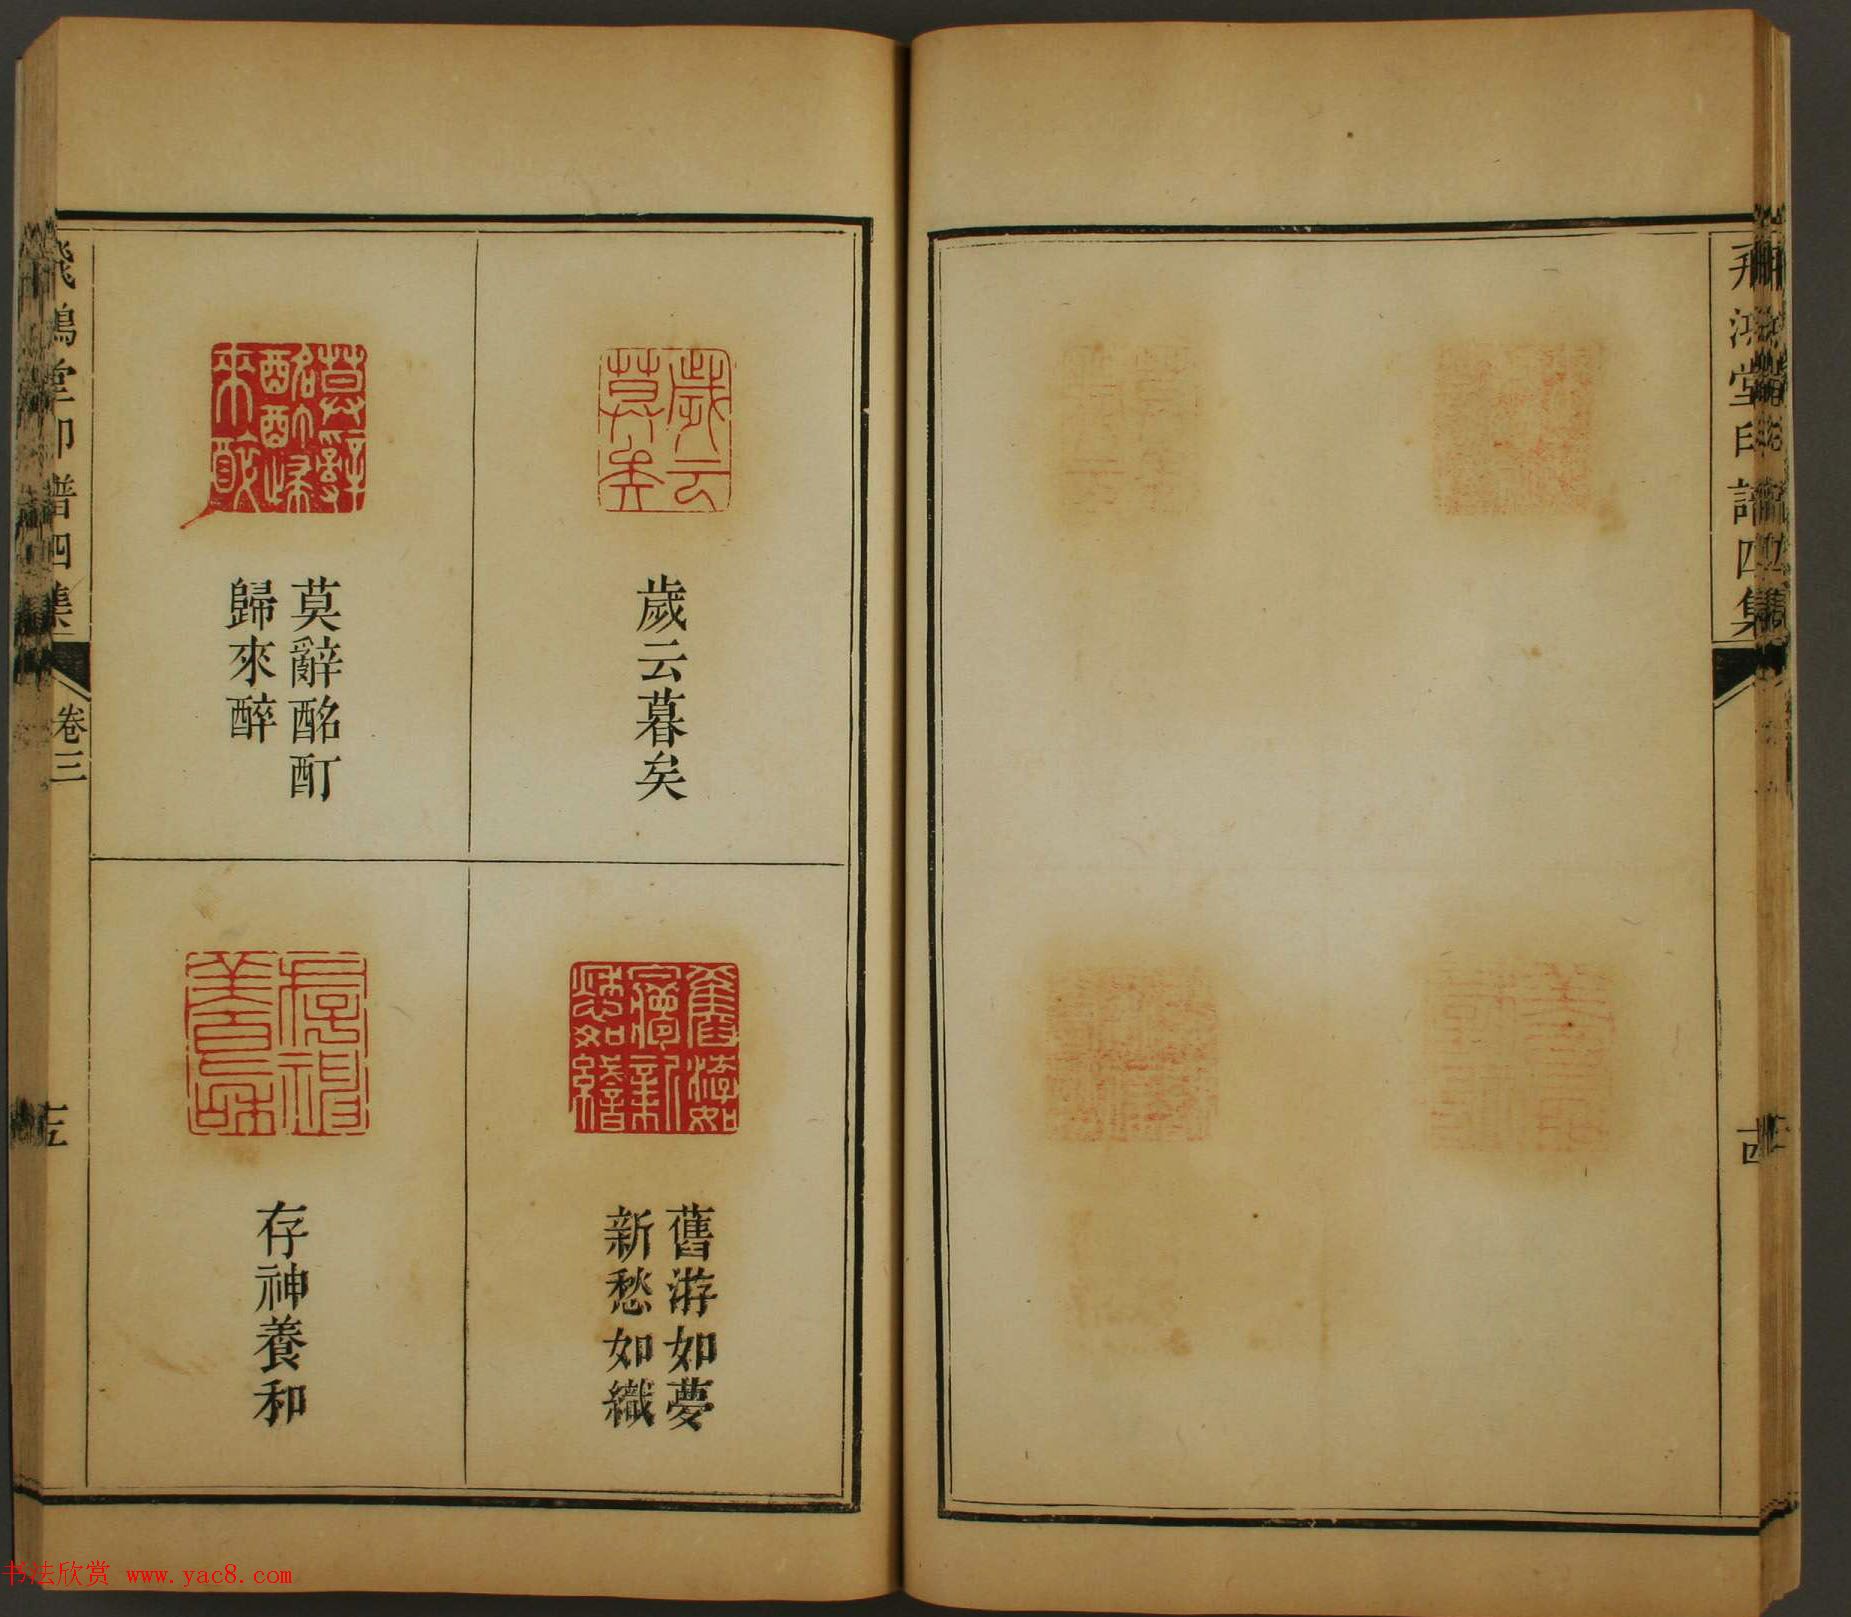 飛鴻堂印譜四集
歲云暮矣
莫辭酩酊
歸來醉
舊游如夢
新愁如織
存神養和
飛鴻堂印譜四集
卷三
书法欣赏 www.yac8.com